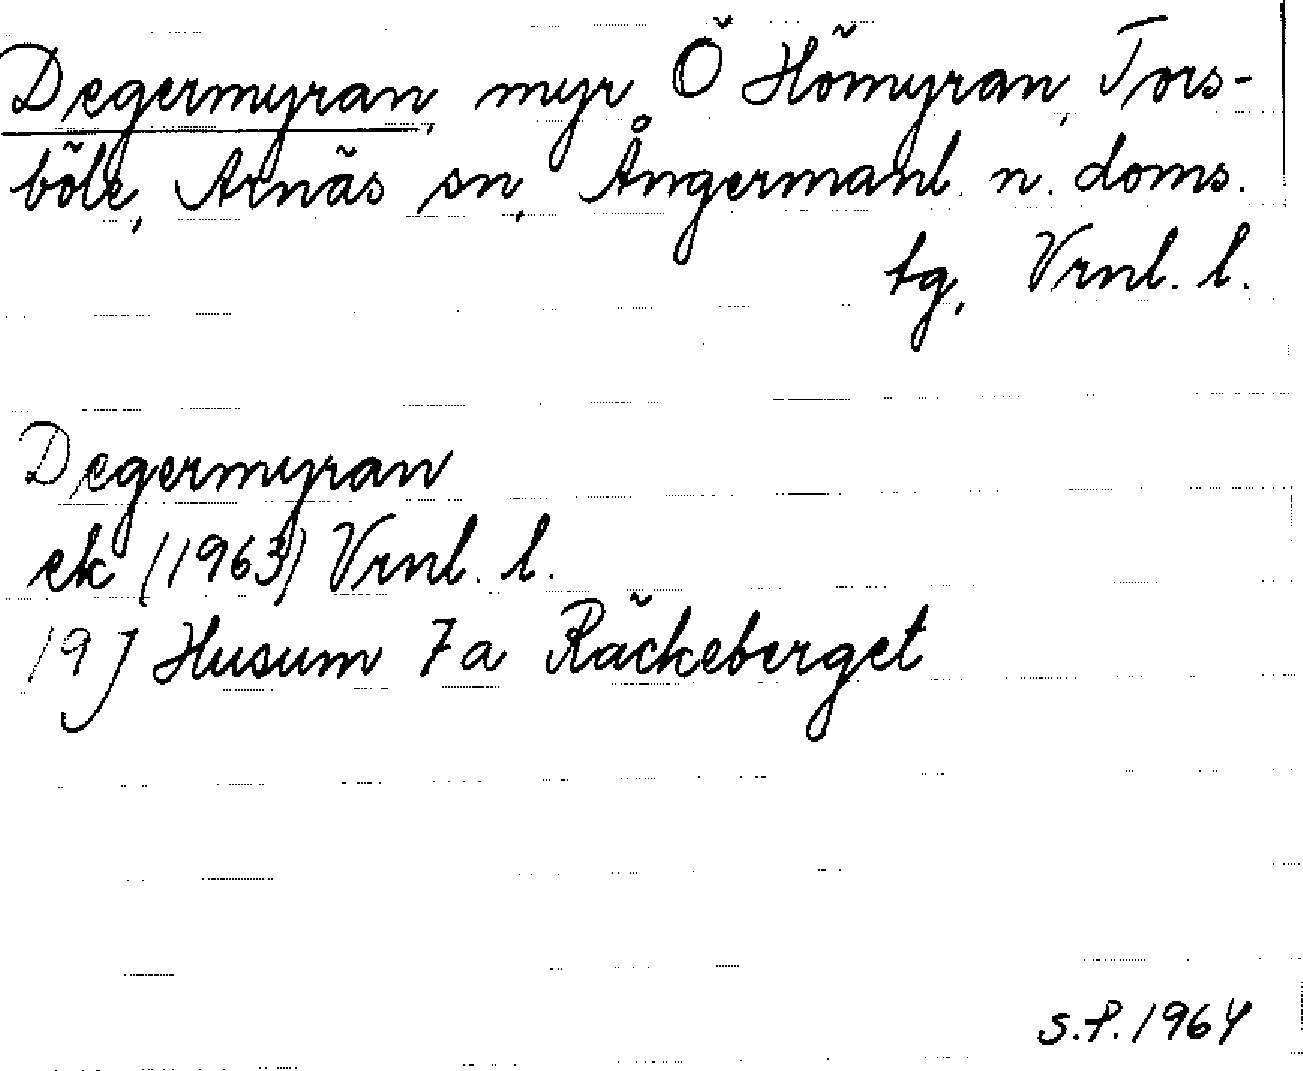 Degermyran, myr Ö Hömyran, Tors-
böle, Arnäs sn, Ångermanl. n. doms.
tg, Vrnl. l.
Degermyran
ek (1963) Vrnl. l.
19 J Husum 7a Räckeberget
S.P. 1964